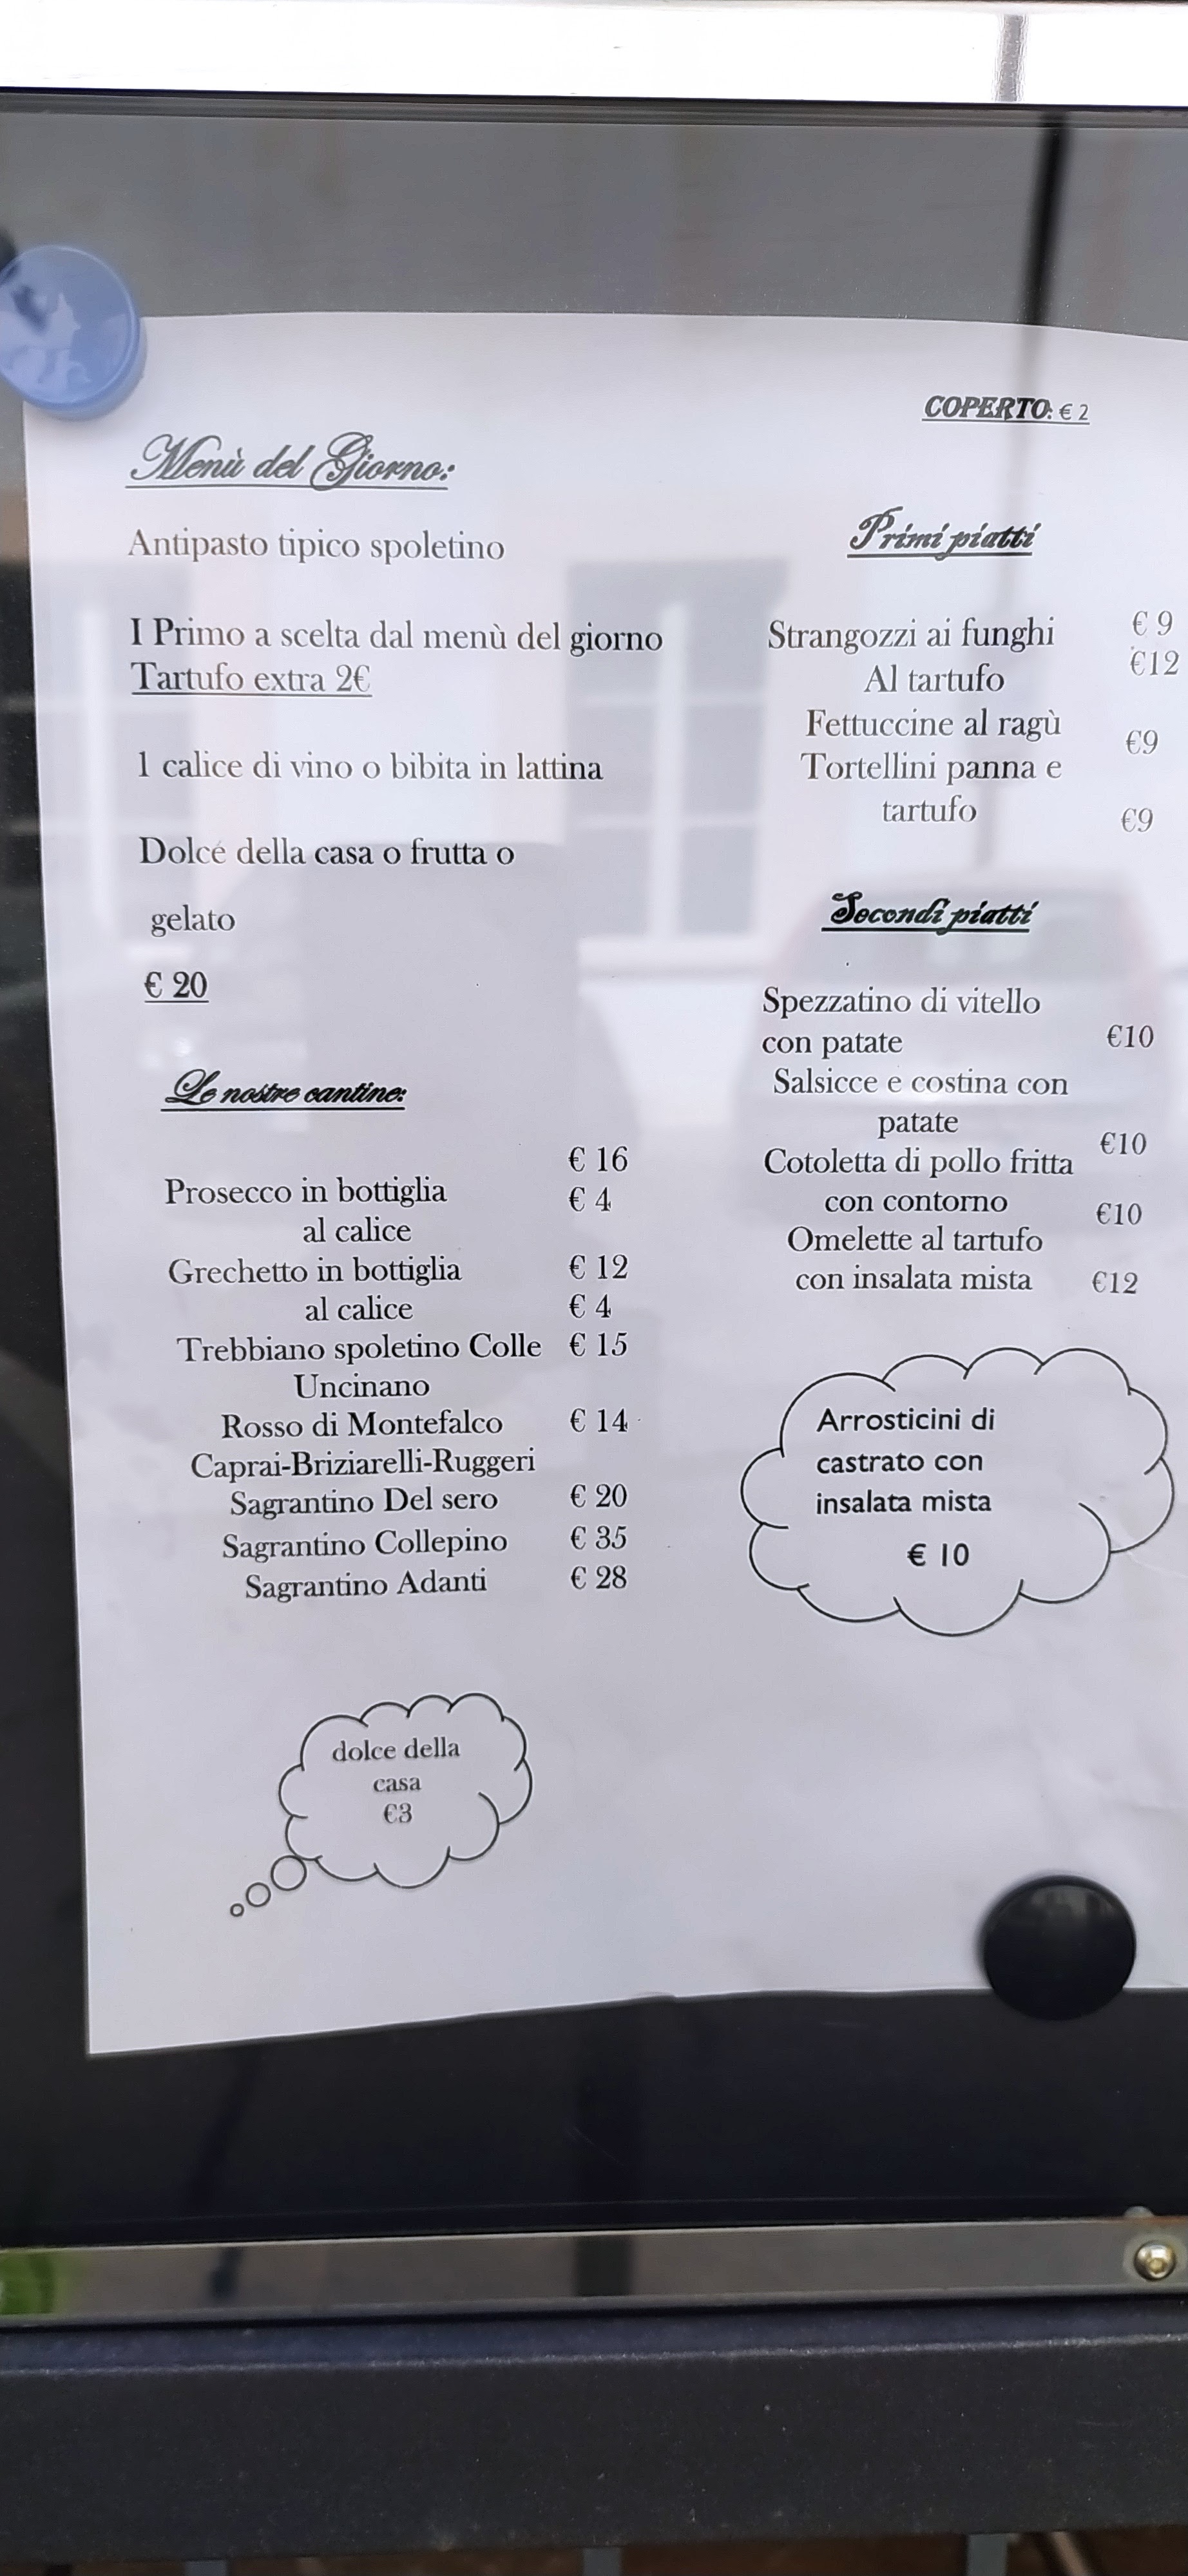 COPERTO: € 2
Menù del Giorno:
Antipasto tipico spoletino
I Primo a scelta dal menù del giorno
Tartufo extra 2€
1 calice di vino o bibita in lattina
Dolce della casa o frutta o
gelato
€ 20
Le nostre cantine:
€ 16
Prosecco in bottiglia
€ 4
al calice
Grechetto in bottiglia € 12
al calice € 4
Trebbiano spoletino Colle € 15
Uncinano
Rosso di Montefalco € 14
Caprai-Briziarelli-Ruggeri
Sagrantino Del sero € 20
Sagrantino Collepino € 35
Sagrantino Adanti € 28
dolce della
casa
€3
Primi piatti
Strangozzi ai funghi € 9
Al tartufo €12
Fettuccine al ragù €9
Tortellini panna e
tartufo €9
Secondi piatti
Spezzatino di vitello
con patate €10
Salsicce e costina con
patate €10
Cotoletta di pollo fritta
con contorno €10
Omelette al tartufo
con insalata mista €12
Arrosticini di
castrato con
insalata mista
€ 10